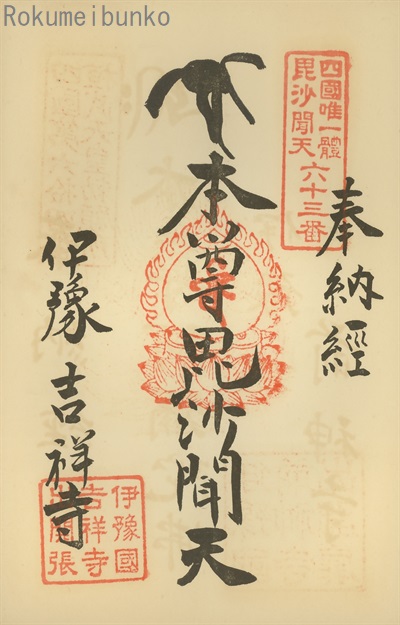 Rokumeibunko
四國唯一體
毘沙聞天六十三番
奉納經
本尊毘沙聞天
伊豫吉祥寺
伊豫國
吉祥寺